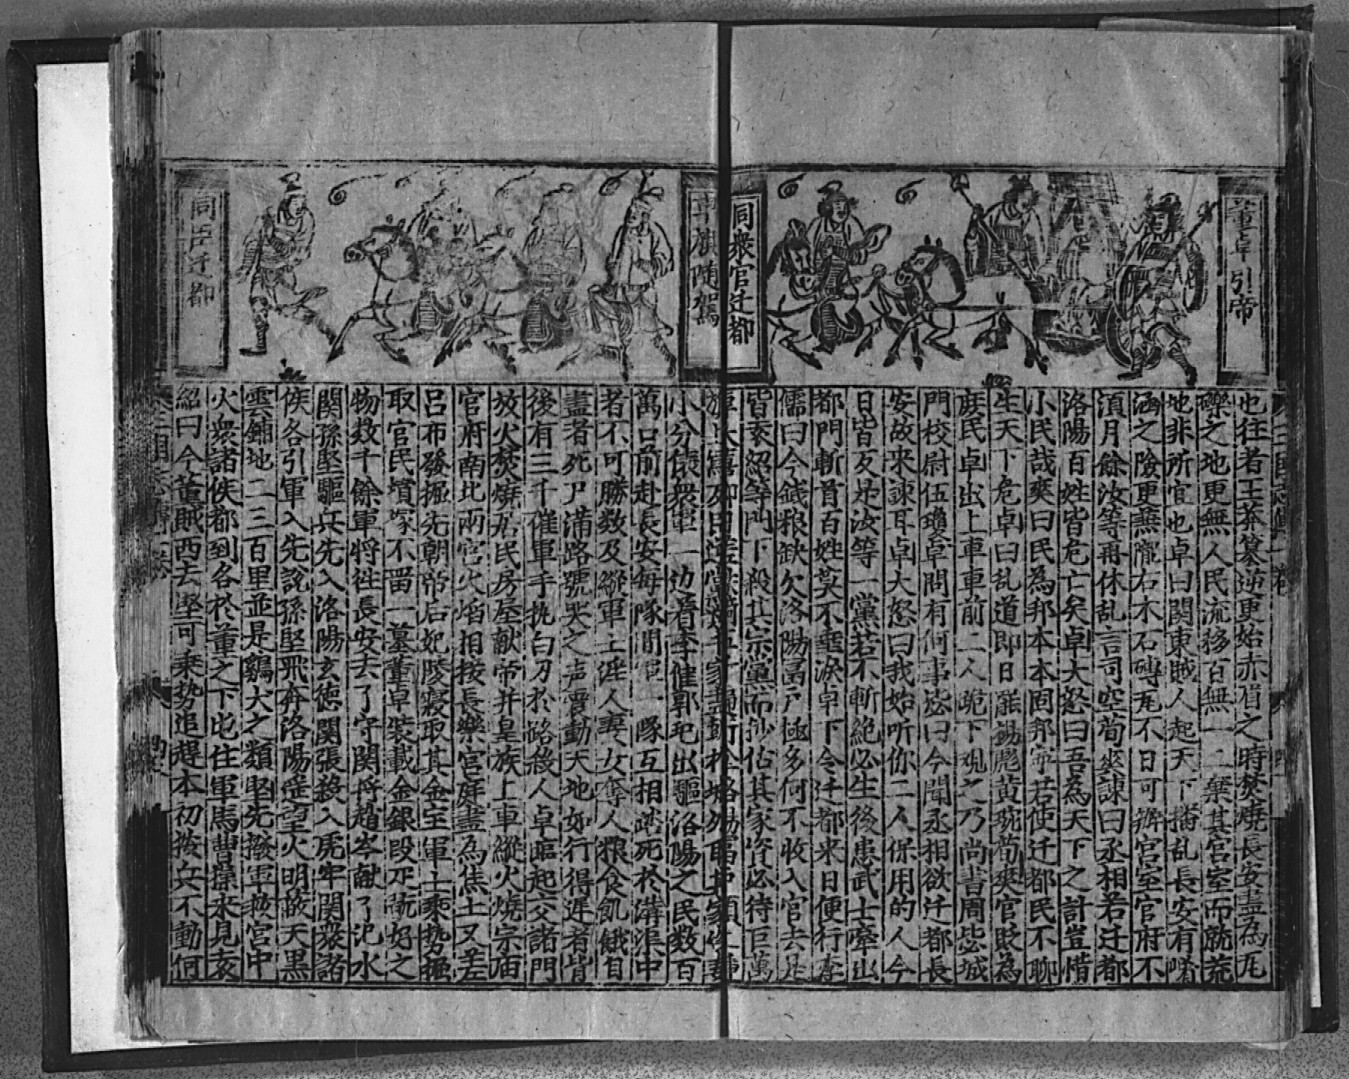 董卓引帝
同衆官迁都
也往者王莽篡逆更始赤眉之時焚燒長安盡為瓦
礫之地更無人民流移百無一二棄其宮室而就荒
地非所宜也卓曰関東賊人起天下播乱長安有崤
凾之險更蕪隴右木石磚瓦不日可辦宮室官府不
湏月餘汝等再休乱言司空荀爽諫曰丞相若迁都
洛陽百姓皆危亡矣卓大怒曰吾為天下之計豈惜
小民哉爽曰民為邦本本固邦寕若使迁都民不聊
生天下危卓曰乱道即日罷楊彪黄琬荀爽官貶為
庶民卓出上車車前二人跪下視之乃尚書周毖城
門校尉伍瓊卓問有何事毖曰今聞丞相欲迁都長
安故来諫耳卓大怒曰我始听你二人保用的人今
日皆反是汝等一黨若不斬絶必生後患武士牽出
都門斬首百姓莫不垂淚卓下令迁都来日便行李
儒曰今錢粮缺欠洛陽富戸極多何不收入官去是
皆袁紹等門下殺其宗黨而抄佔其家資必待巨萬
車旗随駕
同臣迁都
小分俵衆軍一边着李傕郭汜出驅洛陽之民数百
萬口前赴長安每隊間軍一隊互相踏死於溝渠中
者不可勝数及縱軍士淫人妻女奪人粮食飢餓自
盡者死尸滿路號哭之声震動天地如行得遅者皆
後有三千催軍手執白刃於路殺人卓臨起火諸門
放火焚燒居民房屋献帝并皇族上車縱火燒宗庙
官府南北兩宮火焰相接長樂宮庭盡為焦土又差
呂布發掘先朝帝后妃陵寝取其金宝軍士乘勢掘
取官民墳塚不畱一墓董卓装載金銀段疋玩好之
物数千餘軍将徃長安去了守関将趙岑献了汜水
関孫堅驅兵先入洛陽玄徳関張殺入虎牢関衆諸
侯各引軍入先說孫堅飛奔洛陽遥望火明蔽天黒
雲鋪地二三百里並是鷄犬之類堅先撥軍救宮中
火衆諸侯都到各於董之下屯住軍馬曹操来見袁
紹曰今董賊西去堅可乗势追趕本初按兵不動何